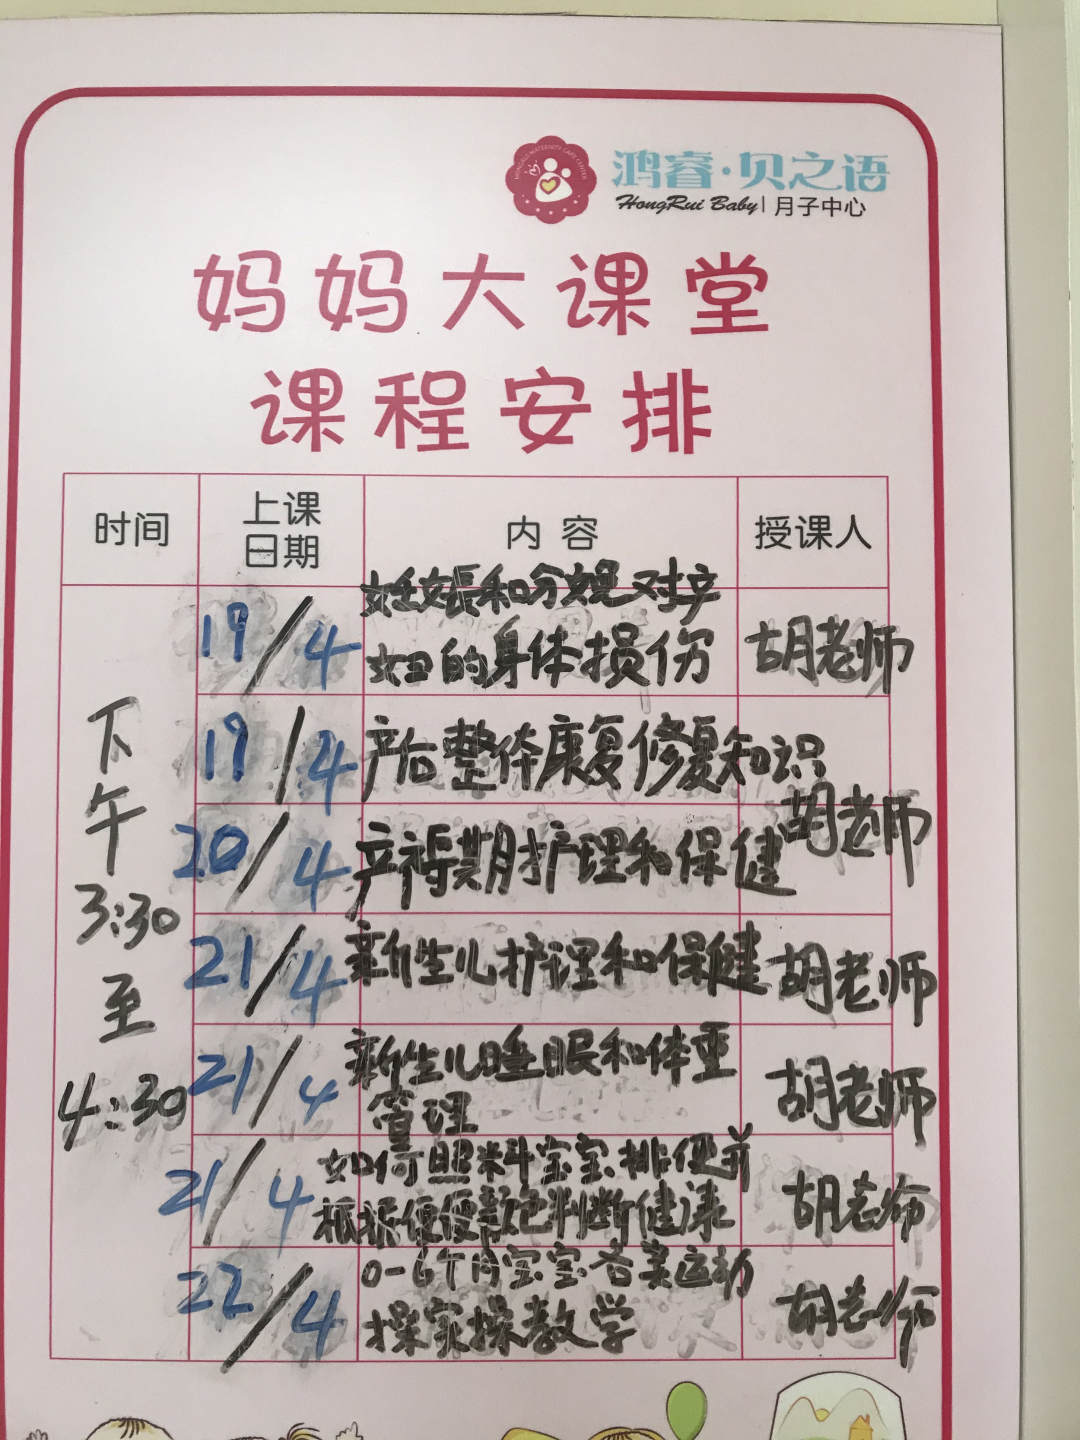 鸿睿·贝之语
HongRui Baby 月子中心
妈妈大课堂
课程安排
时间
上课
日期
内容
授课人
下午
3:30
至
4:30
19/4
妊娠和分娩对产
妇的身体损伤
胡老师
19/4
产后整体康复修复知识
20/4
产褥期护理和保健
胡老师
21/4
新生儿护理和保健
胡老师
21/4
新生儿睡眠和体重
管理
胡老师
21/4
如何照料宝宝排便并
根据便便 判断健康
胡老师
22/4
0-6个月宝宝各类运动
操 操教学
胡老师